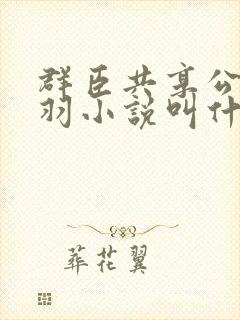 群臣共享公
羽小説叫什
葬花翼